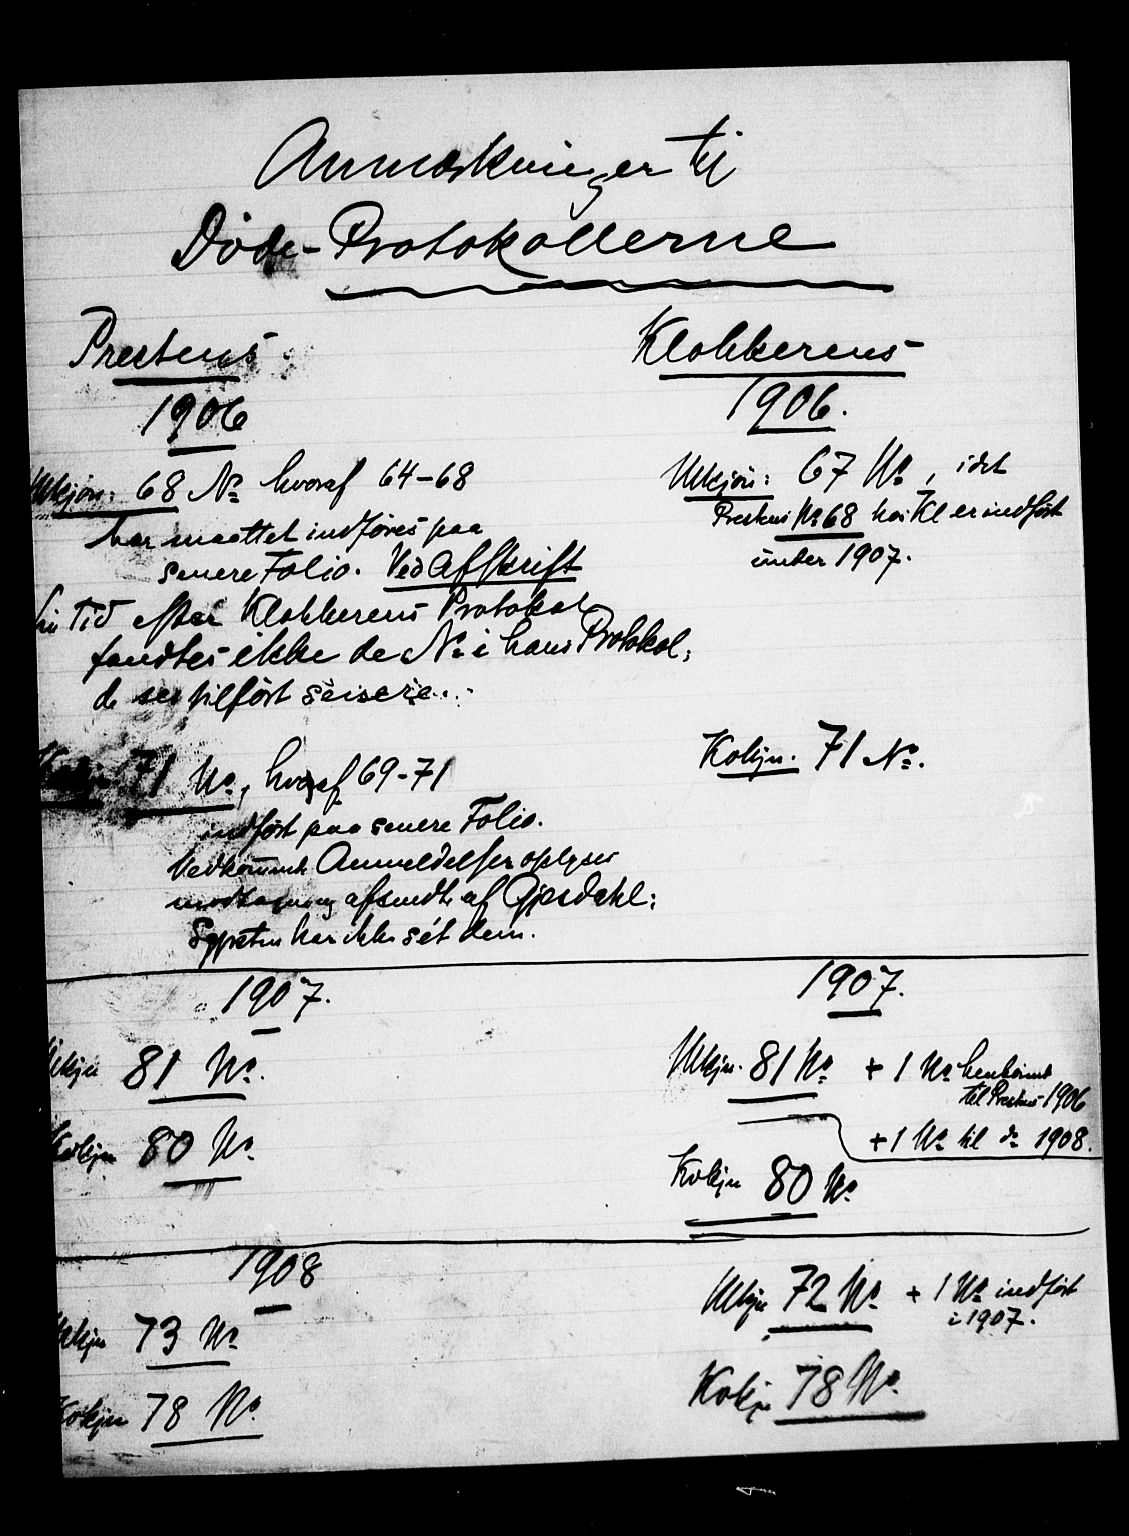 Anmærkninger til
Døde-Protokollerne
Prestens
1906
Mkjøn: 68 No hvoraf 64-68
har maattet indføres paa
senere Folio. Ved Afskrift
sin Tid efter Klokkerens Protokol
fandtes ikke de No i hans Protokol;
de sees tilført senere.
Kvkjn 71 No, hvoraf 69-71
indført paa senere Folio.
Vedkomm Anmeldelser oplyses
modtagning afsendt af Gjesdahl;
Sgpresten har ikke sét dem.
1907.
Mkjn 81 No.
Kvkjn 80 No.
1908
Mkjn 73 No
Kvkjn 78 No.
Klokkerens
1906.
Mkjøn: 67 No, idet
Prestens No 68 hos Kl er indført
under 1907.
Kvkjn. 71 No.
1907.
Mkjn. 81 No + 1 No henhørende
til Prestens 1906
+1 No til do 1908.
Kvkjn 80 No
Mkjn 72 No + 1 No indført
i 1907.
Kvkjn 78 No.